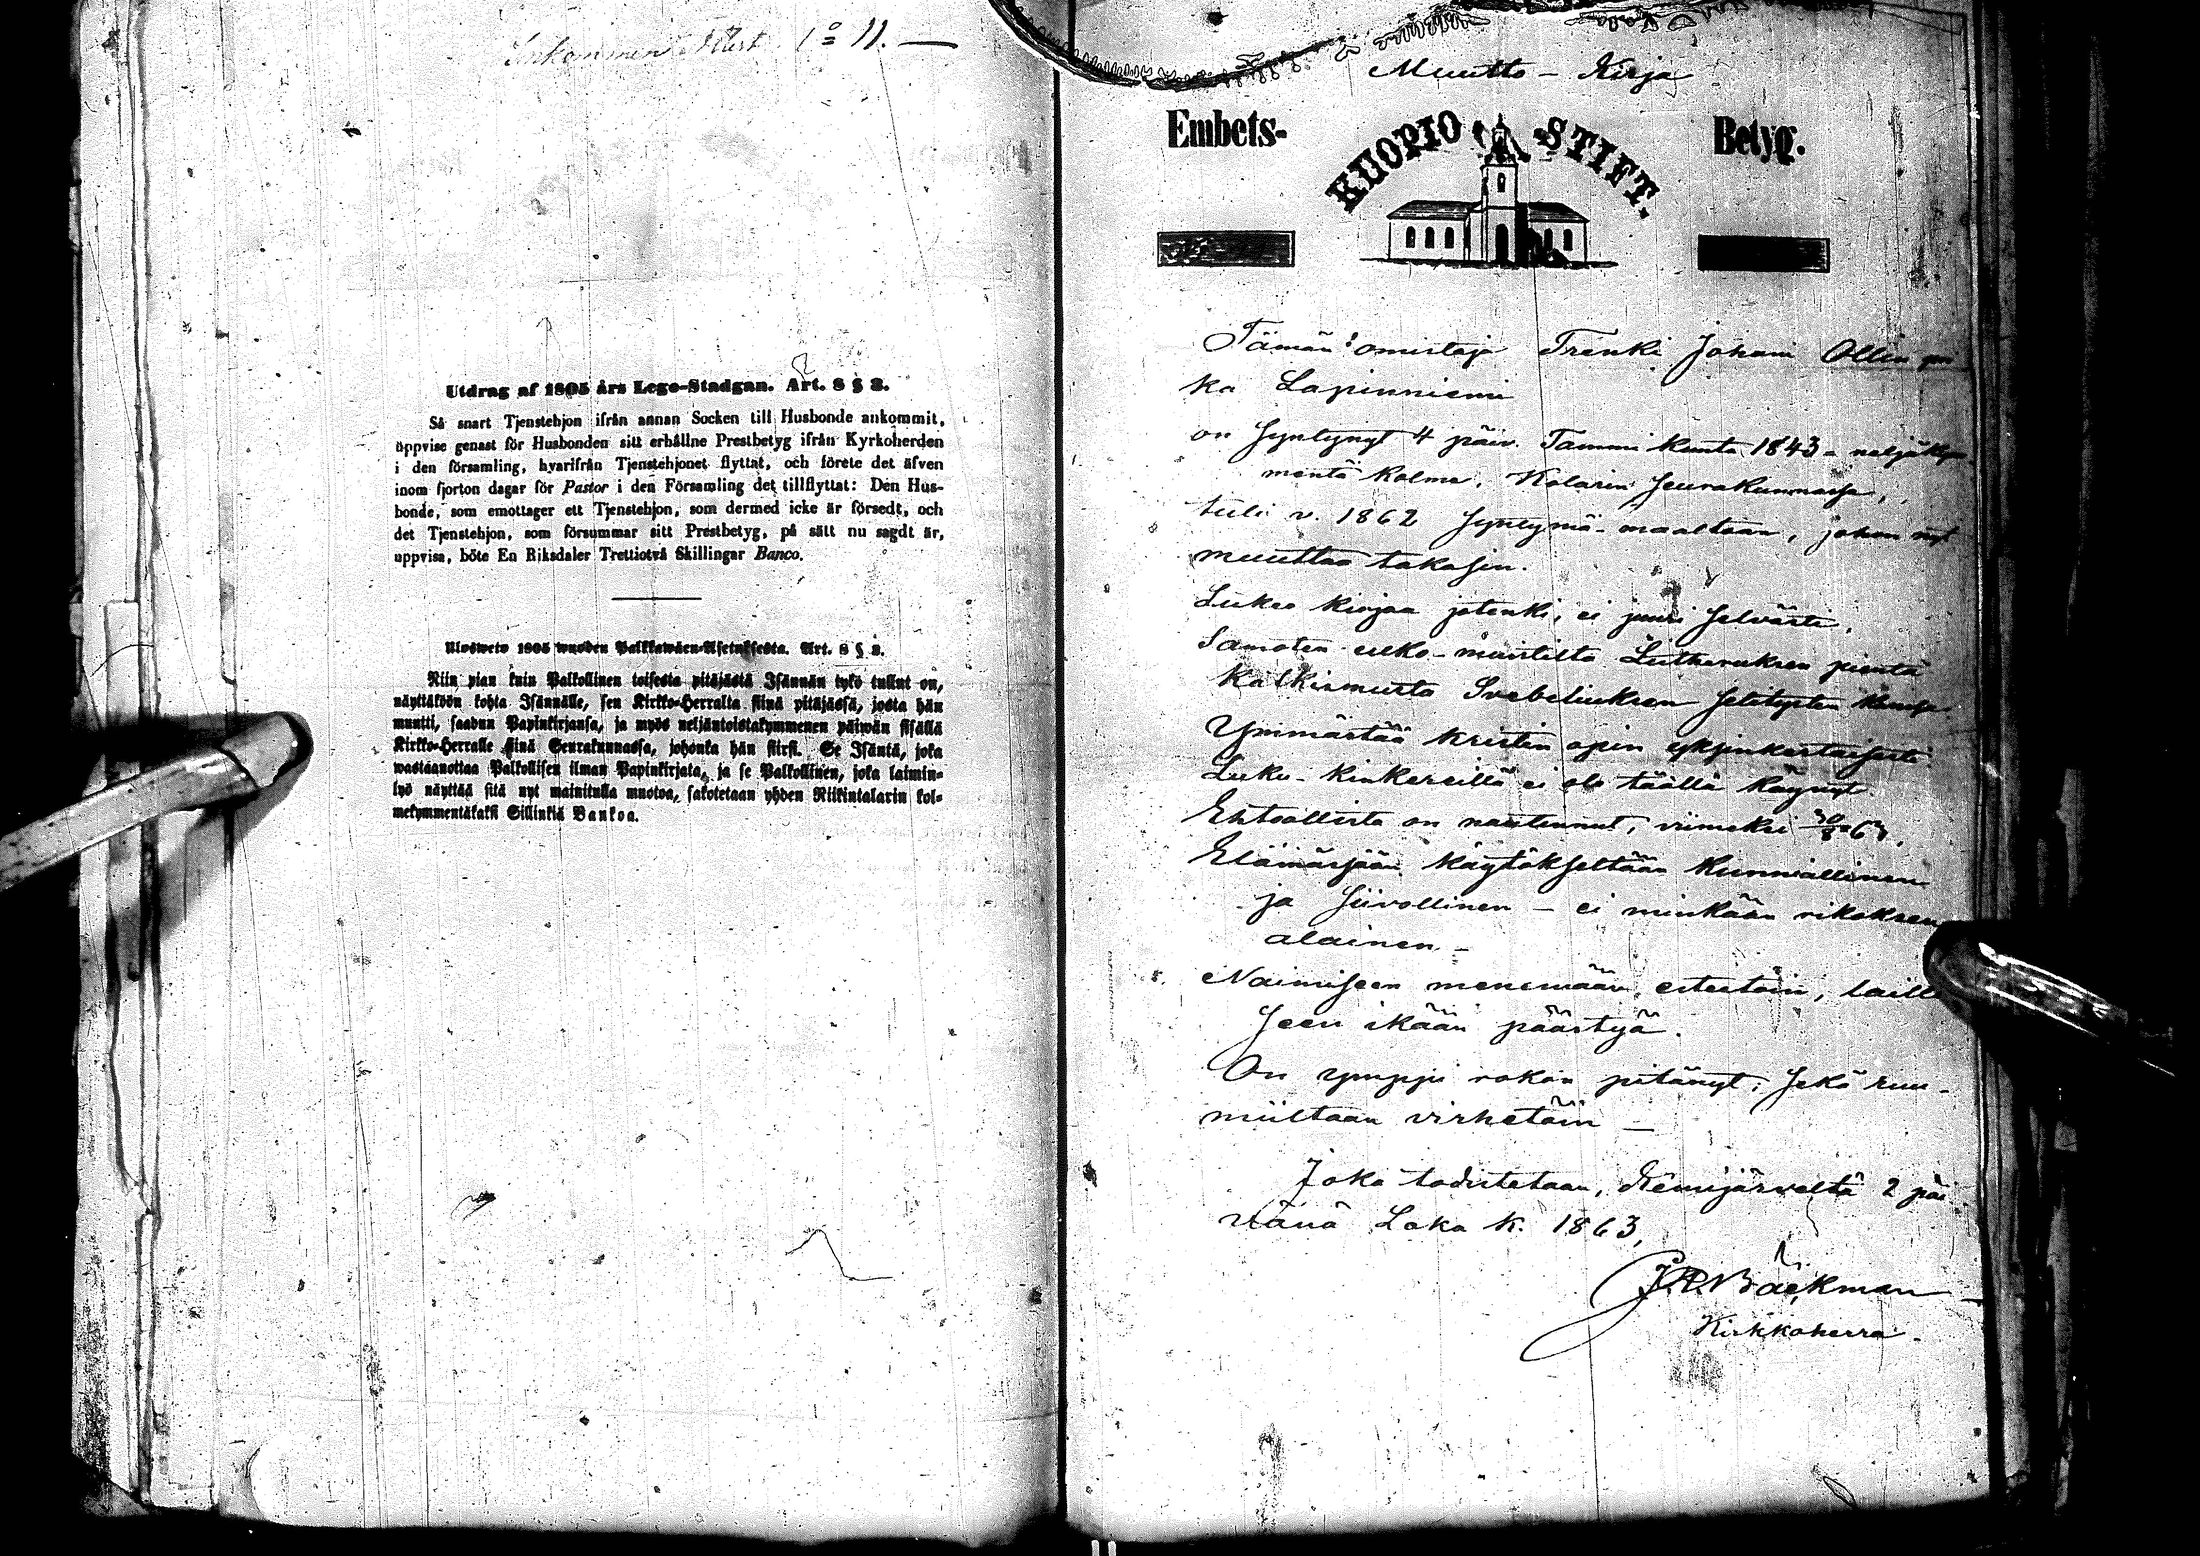 Inkommen Attest 1º 11. —
Utdrag af 1805 års Lego-Stadgan. Art. 8 § 2.
Så snart Tjenstehjon ifrån annan Socken till Husbonde ankommit,
uppvise genast för Husbonden sitt erhållne Prestbetyg ifrån Kyrkoherden
i den församling, hvarifrån Tjenstehjonet flyttat, och förete det äfven
inom fjorton dagar för Pastor i den Församling det tillflyttat: Den Hus-
bonde, som emottager ett Tjenstehjon, som dermed icke är försedt, och
det Tjenstehjon, som försummar sitt Prestbetyg, på sätt nu sagdt är,
uppvisa, böte En Riksdaler Trettiotvå Skillingar Banco.
Ulosweto 1805 wuoden Palkkawäen-Asetuksesta. Art. 8 § 2.
Niin pian kuin Palkollinen toisesta pitäjästä Isännän tykö tullut on,
näyttäköön kohta Isännälle, sen Kirkko-Herralta siinä pitäjässä, josta hän
muutti, saadun Papinkirjansa, ja myös neljäntoistakymmenen päiwän sisällä
Kirkko-Herralle siinä Seurakunnassa, johonka hän siirsi. Se Isäntä, joka
wastaanottaa Palkollisen ilman Papinkirjata, ja se Palkollinen, joka laimin-
lyö näyttää sitä nyt mainitulla muotoa, sakotetaan yhden Riikintalarin kol-
mekymmentäkaksi Sillinkiä Bankoa.
Muutto - Kirja
Embets- KUOPIO STIFT. Betyg.
Tämän omistaja Trenki Johani Ollin poi
ka Lapinniemi
on syntynyt 4 päiv. Tammi kunta 1843 - neljäkym
mentä kolme, Kolarin seurakunnassa,
tuli v. 1862 syntymä-maaltaan, johon nyt
muuttaa takasin.
Lukee kirjaa jotenki, ei juuri selvästi,
Samoten ulko-muistilta Lutheruksen pientä
Katkismusta Svebeliuksen selitysten kanssa
Ymmärtää kristin opin yksinkertaisesti
Luku-kinkereillä ei ole täällä käynyt
Ehtoollista on nautinnut, viimeksi 30/8 63,
Elämässään käytökseltään kunniallinen
ja siivollinen - ei minkään rikoksen
alainen. -
Naimiseen menemään esteetöin, lailli
seen ikään päästyä.
On ymppi rokon pitänyt; sekä ruu-
miiltaan virhetöin -
Joka todistetaan, Kemijärveltä 2 päi
vänä Loka k. 1863,
Bäckman
Kirkkoherra.